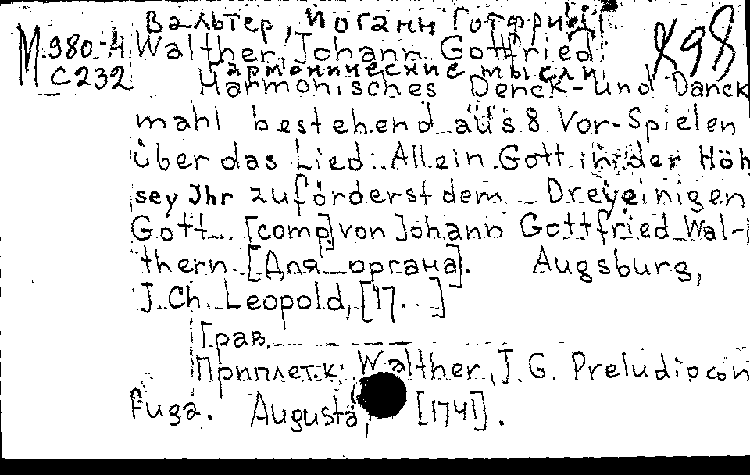 Вальтер, Иоганн Готфрид
М 980-4 Walther, Johann Gottfried К98
С232 Гармонические мысли
Harmonisches Denck- und Danck
mahl bestehend aus 8 Vor-Spielen
über das Lied: Allein Gott in der Höh
sey Ihr zuförderst dem Dreyeinigen
Gott... [comp] von Johann Gottfried Wal-
thern [Для органа]. Augsburg,
J. Ch. Leopold, [17. .]
Грав.
Приплет. к: Walther, J. G. Preludio con
Fuga. Augusta, [1741].